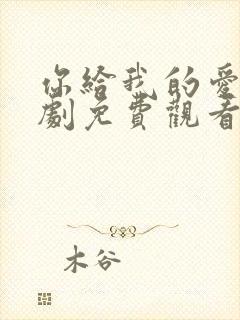 你給我的愛
劇免費觀看
木谷